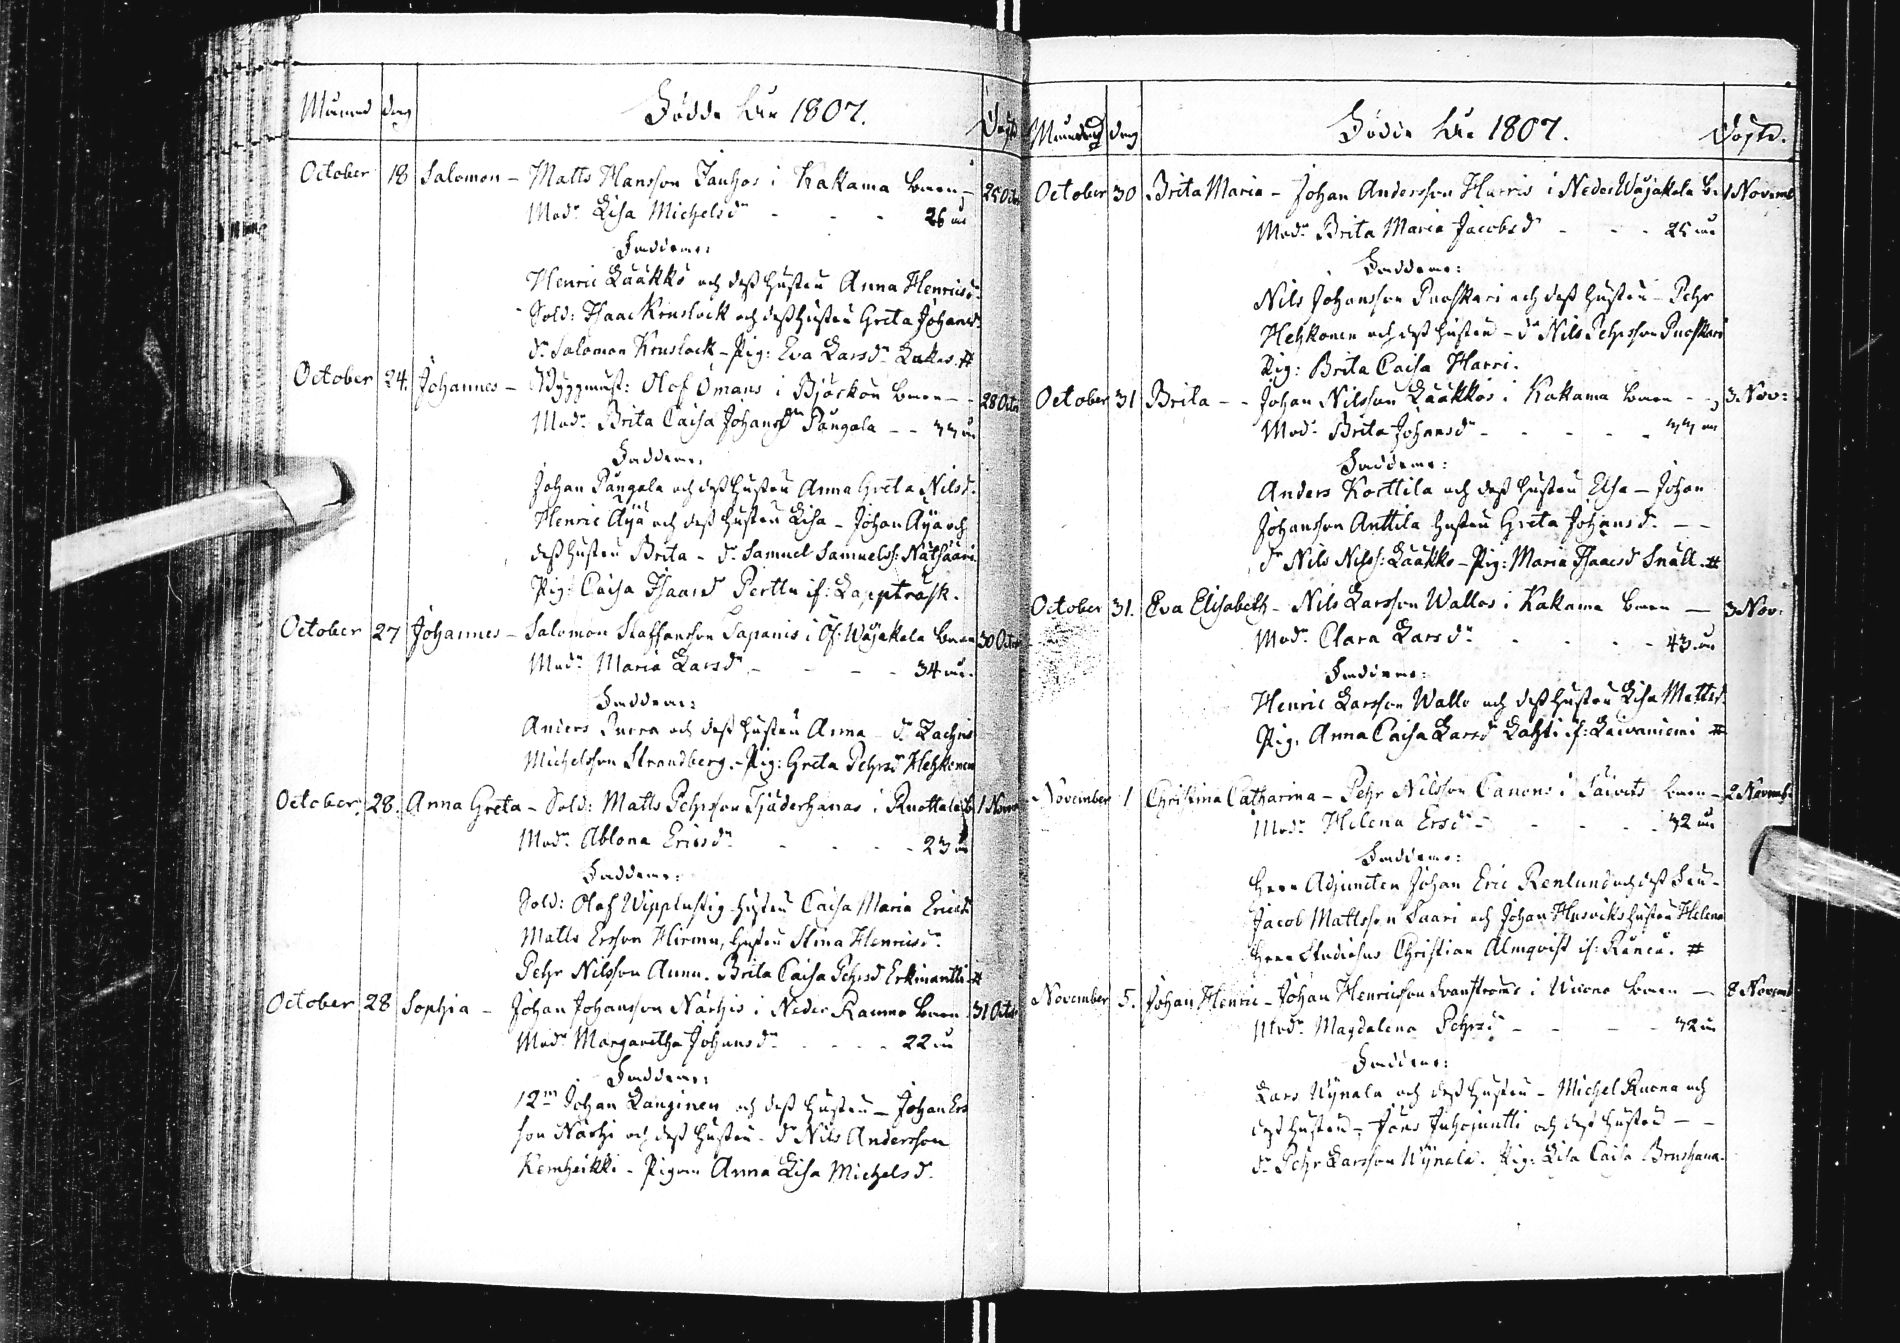 Månad dag Födde åhr 1807. Döpt.
October 18 Salomon – Matts Hansson Jauhos i Kakama barn – 25 Octo
Modr Lisa Michelsdr - - - 26 år
Faddrar:
Henric Lääkkö och dess hustru Anna Henricsd.
Sold: Isaac Kruslock och dess hustru Greta Johansd.
dr Salomon Kruslock – Pig: Eva Larsdr #
October 24. Johannes – Byggmäst: Olof Ömans i Björckön barn – 28 Octo
Modr Brita Caisa Johansdr Pangala – – 33 år
Faddrar:
Johan Pangala och dess hustru Anna Greta Nilsd.
Henric Äyä och dess hustru Lisa – Johan Äyä och
dess hustru Brita – dr Samuel Samuelss:
Pig: Caisa Isaacsd Perttu if: Lappträsk.
October 27 Johannes – Salomon Staffansson Lapanis i Öf: Wojakala barn 30 Octo
Modr Maria Larsdr - - - 34 år.
Faddrar:
Anders och dess hustru Anna – dr Zachris
Michelsson Strandberg. – Pig: Greta Pehrsd Hehkonen
October 28. Anna Greta – Sold: Matts Pehrsson Tjäderhanas i Ruottala b. 1 Novem
Modr Ablona Ericsdr - - - 23 år
Faddrar:
Sold: Olof Wipplustig hustru Caisa Maria Ericsd
Matts Ersson Hirmu, hustru Stina Henricsdr.
Pehr Nilsson Aunu. Brita Caisa Pehrsd Erkinantti #
October 28 Sophia – Johan Johansson Närhis i Neder Raumo barn 31 Octo
Modr Margaretha Johansdr - - - 22 år
Faddrar:
12mn Johan Langinen och dess hustru – Johan Ers
son Närhi och dess hustru – dr Nils Andersson
Kemheikki – Pigan Anna Lisa Michelsd.
Månad dag Födde åhr 1807. Döpte.
October 30 Brita Maria – Johan Andersson Harris i Neder Wojakala b. 1 Novemb
Modr Brita Maria Jacobsdr - - - 25 år
Faddrar:
Nils Johansson Puoskari och dess hustru – Pehr
Hehkonen och dess hustru – dr Nils Pehrsson Puoskari
Pig: Brita Caisa Harri.
October 31 Brita – – Johan Nilsson Lääkkös i Kakama barn – – 3 Nov:
Modr Brita Johansdr - - - 33 år
Faddrar:
Anders Korttila och dess hustru Elsa – Johan
Johansson Anttila hustru Greta Johansd. – –
dr Nils Nilss: Lääkkö – Pig: Maria Isaacsd Snäll. #
October 31. Eva Elisabeth – Nils Larsson Wallos i Kakama barn — 3 Nov:
Modr Clara Larsdr - - - 43 år
Faddrar:
Henric Larsson Wallo och dess hustru Lisa Mattsd.
Pig: Anna Caisa Larsd Lahti if: Laivaniemi #
November 1 Christina Catharina – Pehr Nilsson Canons i Säivits barn – 2 Novemb
Modr Helena Ersdr - - - 32 år
Faddrar:
Herr Adjuncten Johan Eric Renlund och dess Fru –
Jacob Mattsson Saari och Johan Husviks hustru Helena
Herr Studiosus Christian Almqvist if: Råneå. #
November 5. Johan Henric – Johan Henricsson Svanströms i barn — 8 Novemb
Modr Magdalena Pehrsdr - - - 32 år
Faddrar:
Lars Wynälä och dess hustru – Michel Ruona och
dess hustru – Jöns Juhojuntti och dess hustru – –
dr Pehr Larsson Wynälä. Pig: Lisa Caisa Brushana.